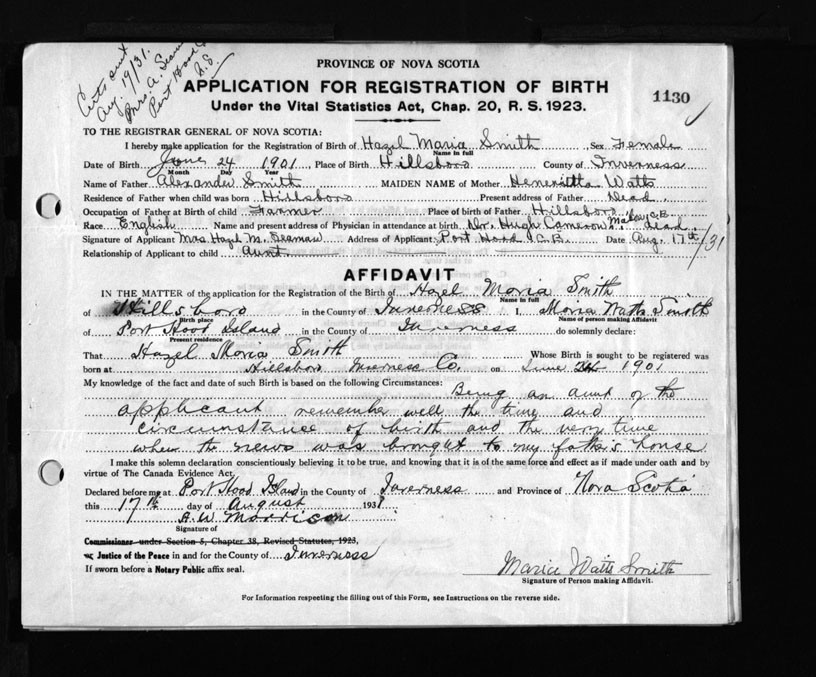 Certs sent
Aug 19/31.
Mrs. A. Seaman
Port Hood
N.S.
PROVINCE OF NOVA SCOTIA
APPLICATION FOR REGISTRATION OF BIRTH
Under the Vital Statistics Act, Chap. 20, R. S. 1923.
1130
TO THE REGISTRAR GENERAL OF NOVA SCOTIA:
I hereby make application for the Registration of Birth of Hazel Maria Smith Sex Female
Name in full
Date of Birth June 24 1901, Place of Birth Hillsboro County of Inverness
Month Day Year
Name of Father Alexander Smith MAIDEN NAME of Mother Henrietta Watts
Residence of Father when child was born Hillsboro Present address of Father Dead
Occupation of Father at Birth of child Farmer Place of birth of Father Hillsboro
Race English Name and present address of Physician in attendance at birth Dr. Hugh Cameron, Mabou, C.B. dead.
Signature of Applicant Mrs Hazel M. Seaman Address of Applicant Port Hood, C.B. Date Aug. 17th/31
Relationship of Applicant to child aunt
AFFIDAVIT
IN THE MATTER of the application for the Registration of the Birth of Hazel Maria Smith
Name in full
of Hillsboro in the County of Inverness I, Maria Watts Smith
Birth place Name of person making Affidavit
of Port Hood Island in the County of Inverness do solemnly declare:
Present residence
That Hazel Maria Smith Whose Birth is sought to be registered was
born at Hillsboro Inverness Co. on June 24 1901
My knowledge of the fact and date of such Birth is based on the following Circumstances: Being an aunt of the
applicant remember well the time and
circumstance of birth and the very time
when the news was brought to my father's house
I make this solemn declaration conscientiously believing it to be true, and knowing that it is of the same force and effect as if made under oath and by
virtue of The Canada Evidence Act.
Declared before me at Port Hood Island in the County of Inverness and Province of Nova Scotia
this 17th day of August 1931
A. W. Morrison
Signature of
Commissioner under Section 5, Chapter 38, Revised Statutes, 1923,
or Justice of the Peace in and for the County of Inverness
If sworn before a Notary Public affix seal.
Maria Watts Smith
Signature of Person making Affidavit.
For Information respecting the filling out of this Form, see Instructions on the reverse side.